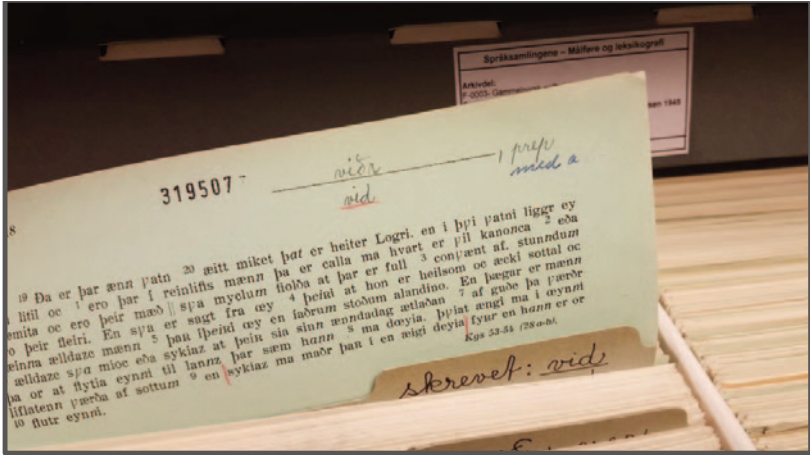 Språksamlingene – Målføre og leksikografi
Arkivdel:
F-0003- Gammelnorsk
sen 1948
319507-
viðr
vid
, prep
med a
8
19 Ða er þar ænn ƿatn 20 æitt miket þat er heiter Logri. en i þƿi ƿatni liggr ey
litil oc 1 ero þar i reinlifis mænn þa er calla ma hvart er ƿil kanonca 2 eða
emita oc ero þeir mæð || sƿa myolum fiolða at þar er full 3 conƿænt af. stundum
ro þeir fleiri. En sƿa er sagt fra œy 4 þeiri at hon er heilsom oc æcki sottal oc
ælldaze mænn 5 þan i þeiri œy en i aðrum stoðum a landino. En þægar er mænn
ælldaze sƿa mioc eða sykiaz at þeir sia sinn ænndadag ætlaðan 7 af guðe þa ƿærðr
þa or at flytia eynni til lannz þar sæm hann 8 ma dœyia. þƿiat ængi ma i œynni
liflatenn ƿærða af sottum 9 en sykiaz ma maðr þan i en æigi deyia fyur en hann er or
10 flutr eynni.
Kgs 53-54 (28 a-b).
skrevet: vid